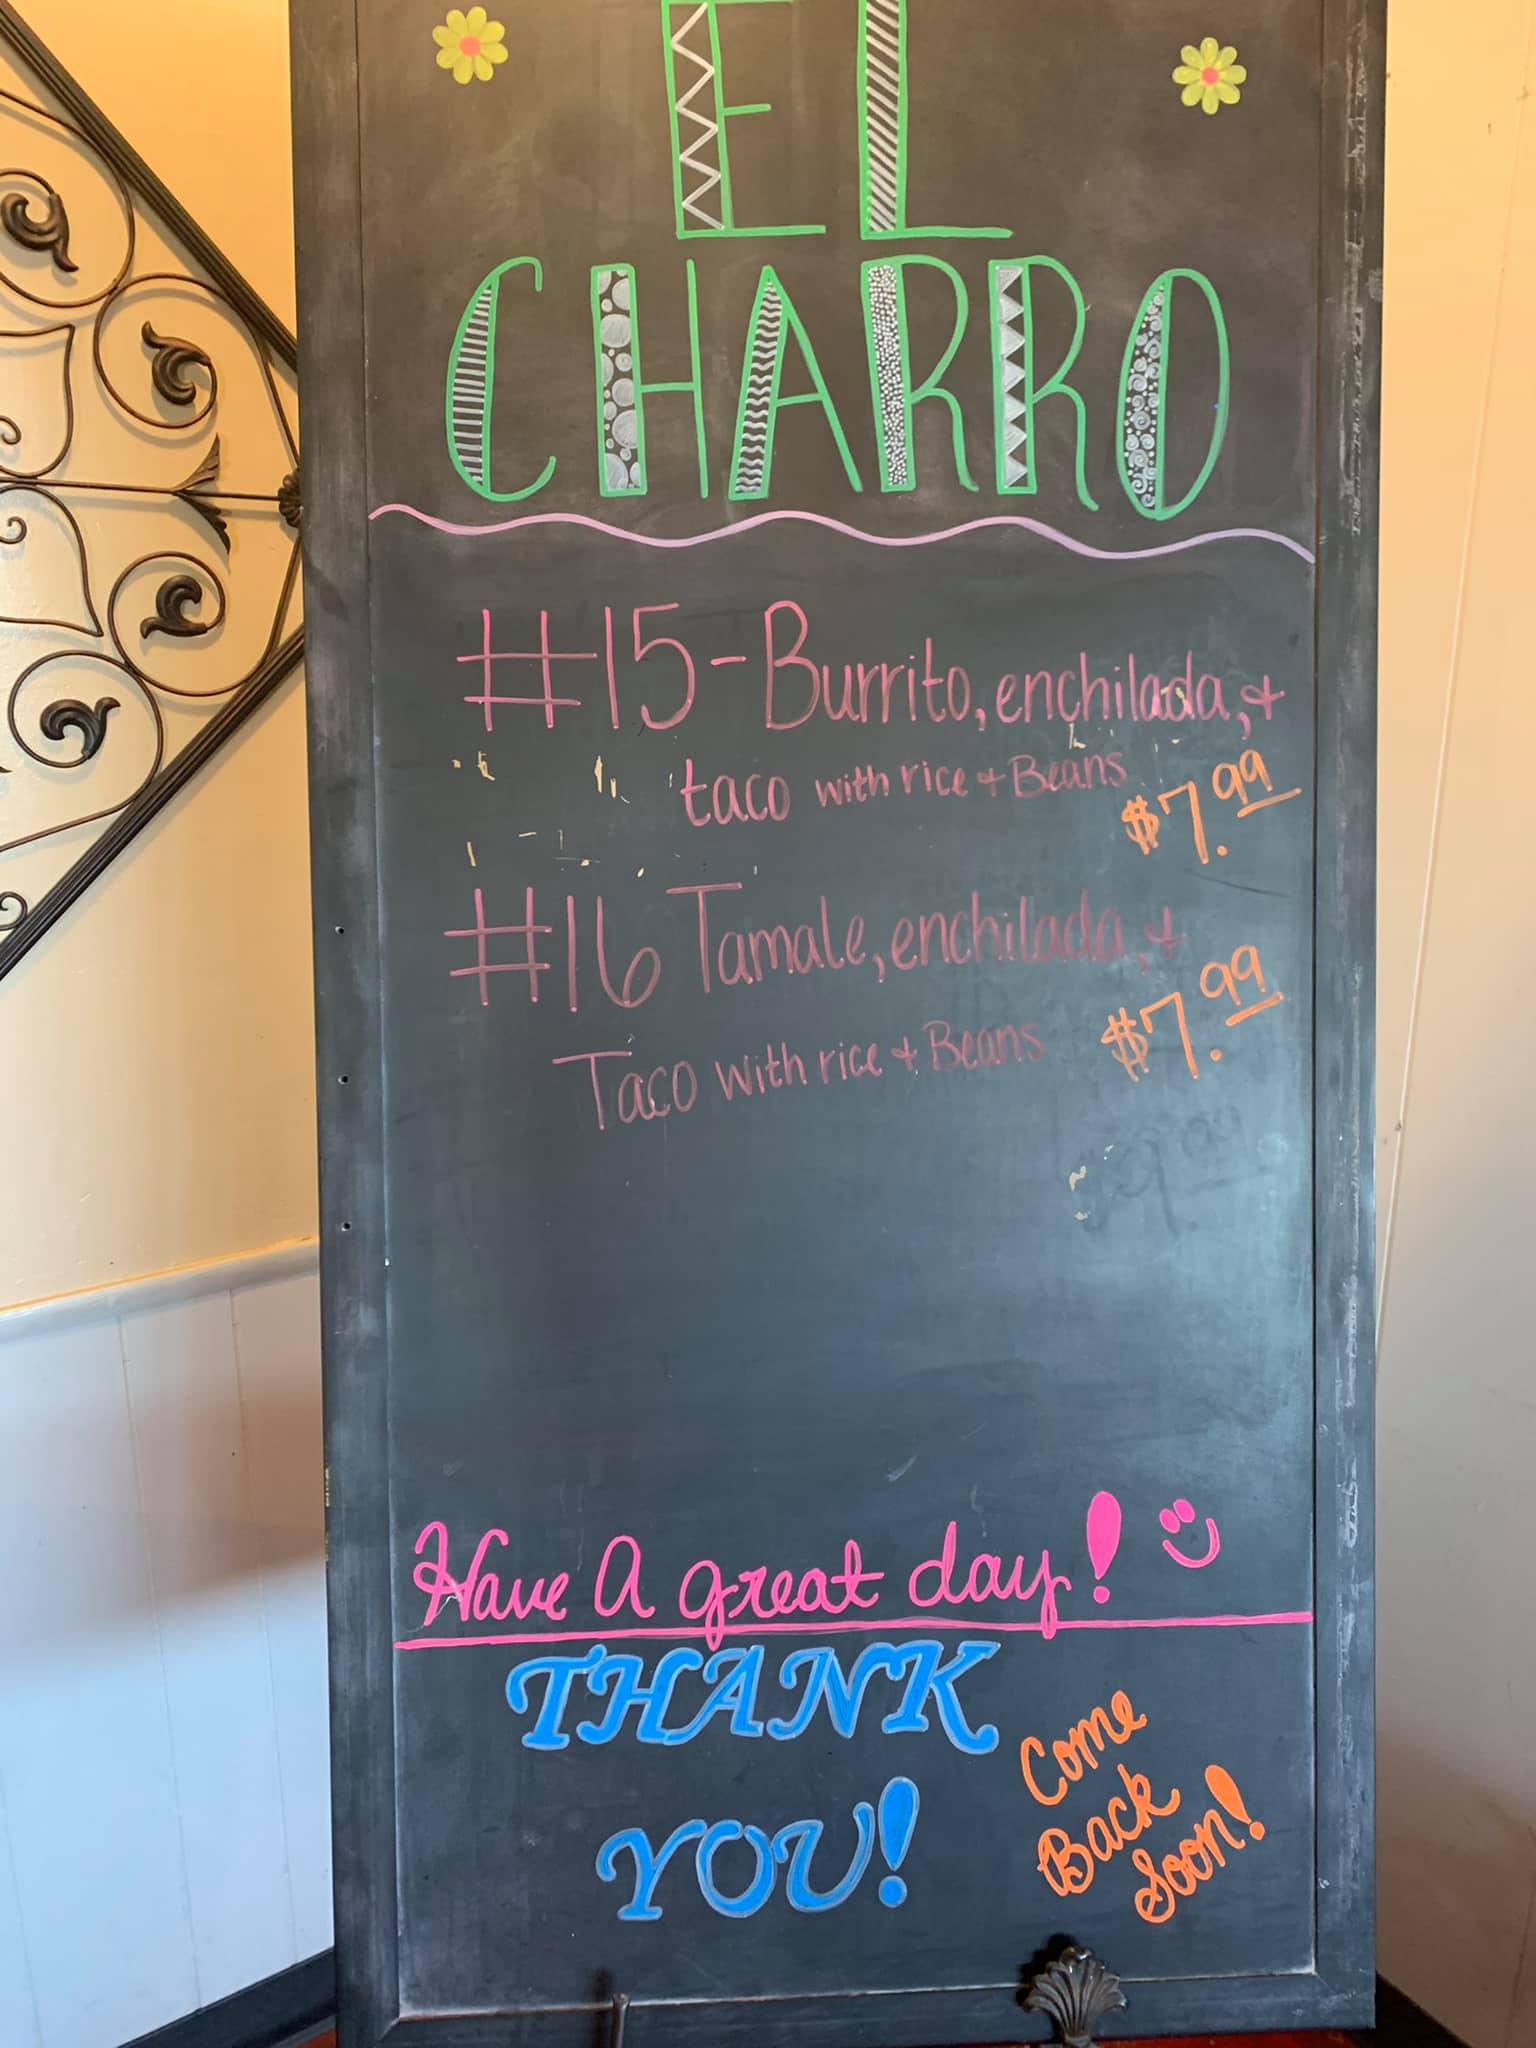 EL
CHARRO
#15-Burrito, enchilada, +
taco with rice + Beans
$7.99
#16 Tamale, enchilada, +
Taco with rice + Beans
$7.99
Have A great day!
THANK
YOU!
Come
Back
Soon!